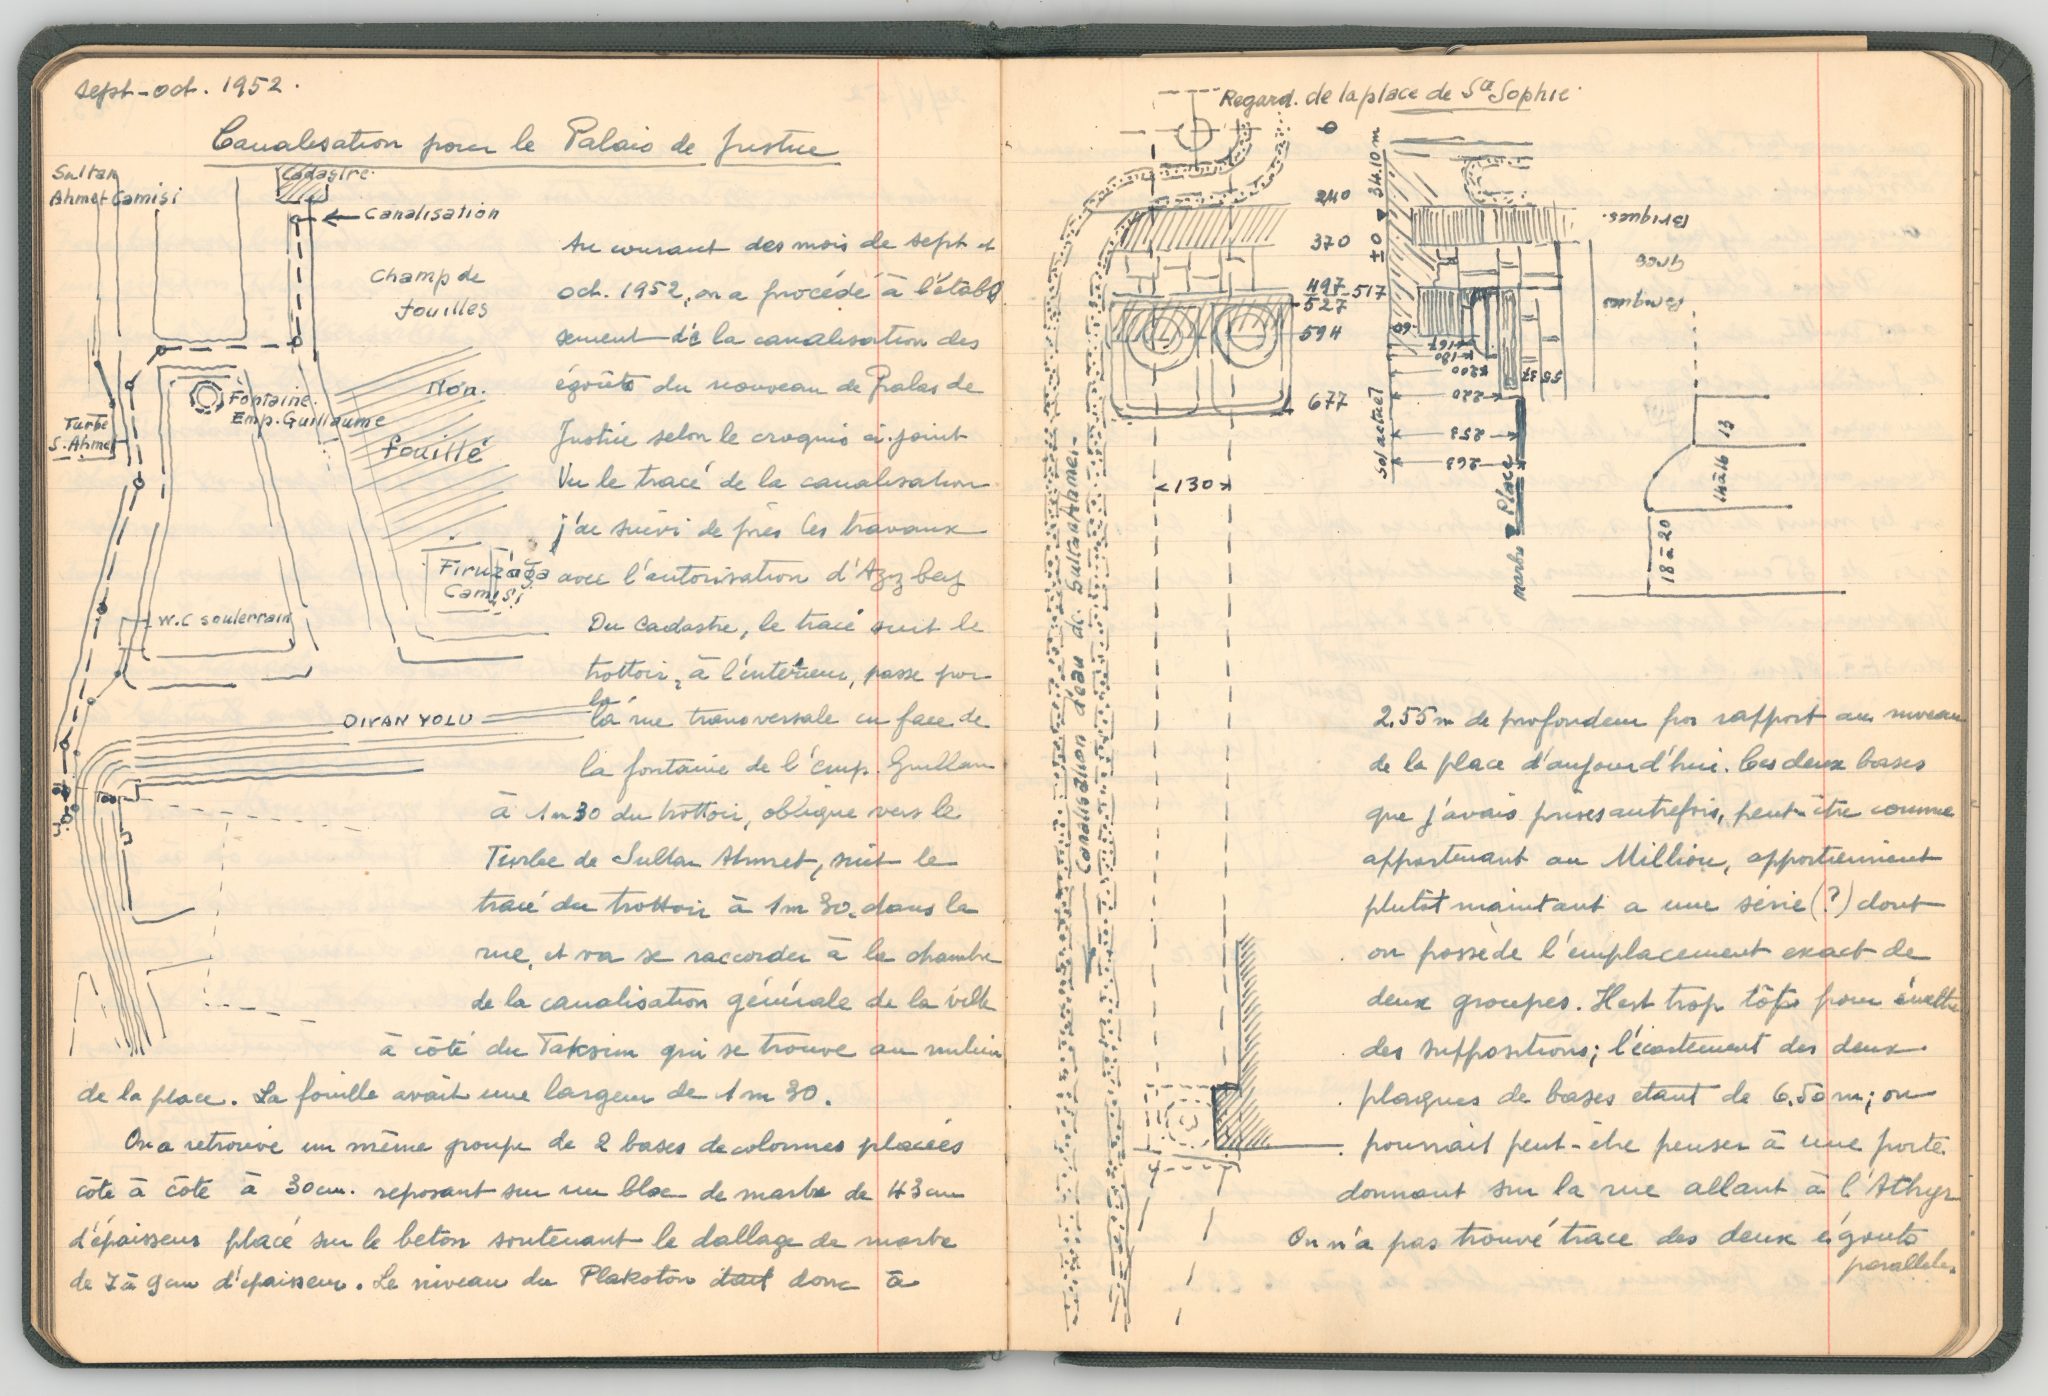 sept-oct. 1952.
Canalisation pour le Palais de Justice
Sultan
Ahmet Camisi
Cadastre.
Canalisation
Champ de
fouilles
Non.
fouillé
Fontaine.
Emp. Guillaume
Turbe
S. Ahmet
Firuzağa
Camisi
W.C souterrain
DIVAN YOLU
Au courant des mois de sept et
oct. 1952, on a procédé à l'établis
sement de la canalisation des
égoûts du nouveau de Palas de
Justice selon le croquis ci-joint
Vu le tracé de la canalisation
j'ai suivi de près les travaux
avec l'autorisation d'Aziz bey
Du Cadastre, le tracé suit le
trottoir, à l'interieur, passe par
la
la rue transversale en face de
la fontaine de l'emp. Guillau
à 1m30 du trottoir, oblique vers le
Turbe de Sultan Ahmet, suit le
tracé du trottoir à 1m30, dans la
rue, et va se raccorder à la chambre
de la canalisation générale de la ville
à côté du Taksim qui se trouve au milieu
de la place. La fouille avait une largeur de 1m30.
On a retrouvé un même groupe de 2 bases de colonnes placées
côte à côte à 30cm. reposant sur un bloc de marbre de 43cm
d'épaisseur placé sur le beton soutenant le dallage de marbre
de 7 à 9cm d'épaisseur. Le niveau du Plakoton était donc à
Regard. de la place de Ste Sophie
0
240
370
497-517
527
594
677
130
Canalisation d'eau de Sultan Ahmet
± 0 34.10 m
Sol actuel
Briques.
grec
Briques
60
167
180
200
220
253
263
37
55
marbre Place
13
14 à 16
18 à 20
2.55m de profondeur par rapport au niveau
de la place d'aujourd'hui. Ces deux bases
que j'avais prises autrefois, peut-être comme
appartenant au Million, appartiennent
plutôt maintant a une série (?) dont
on possède l'emplacement exact de
deux groupes. Il est trop tôt pour émettre
des suppositions; l'écartement des deux
plaques de bases etant de 6.50m; on
pourrait peut-être penser à une porte
donnant sur la rue allant à l'Athyr
On n'a pas trouvé trace des deux égouts
parallèles.